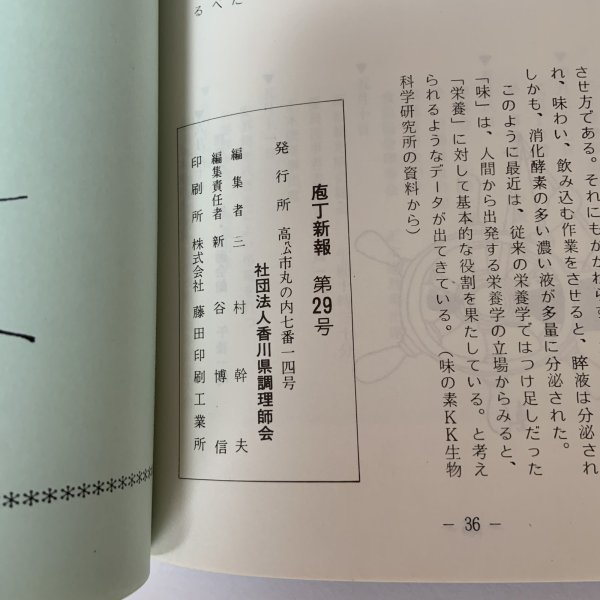 させ方である。それにもかかわらず、
れ、味わい、飲み込む作業をさせると、膵液は分泌され
しかも、消化酵素の多い濃い液が多量に分泌された。
このように最近は、従来の栄養学ではつけ足しだった
「味」は、人間から出発する栄養学の立場からみると、
「栄養」に対して基本的な役割を果たしている。と考え
られるようなデータが出てきている。（味の素KK生物
科学研究所の資料から）
庖丁新報　第29号
発行所　高松市丸の内七番一四号
社団法人香川県調理師会
編集者　三村幹夫
編集責任者　新谷博信
印刷所　株式会社　藤田印刷工業所
－36－
た
へ
る
******************